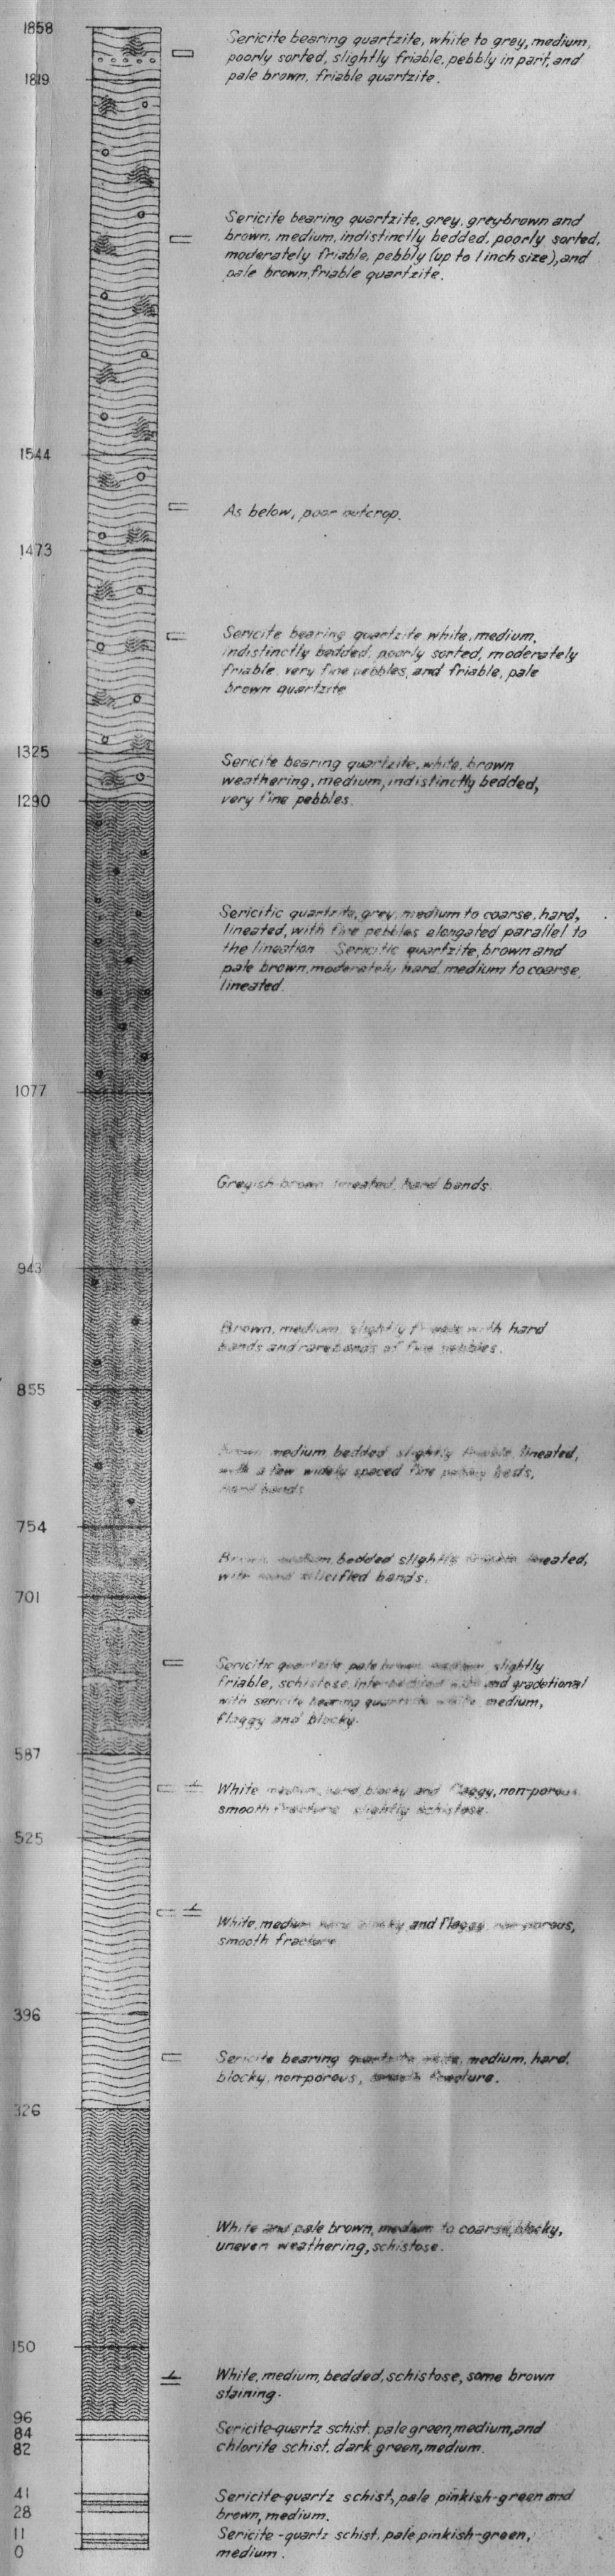 1858
Sericite bearing quartzite, white to grey, medium,
poorly sorted, slightly friable, pebbly in part, and
pale brown, friable quartzite.
1819
Sericite bearing quartzite, grey, grey-brown and
brown, medium, indistinctly bedded, poorly sorted,
moderately friable, pebbly (up to 1 inch size), and
pale brown, friable quartzite.
1544
As below, poor outcrop.
1473
Sericite bearing quartzite white, medium,
indistinctly bedded, poorly sorted, moderately
friable, very fine pebbles, and friable, pale
brown quartzite
1325
Sericite bearing quartzite, white, brown
weathering, medium, indistinctly bedded,
very fine pebbles.
1290
Sericitic quartzite, grey, medium to coarse, hard,
lineated, with fine pebbles elongated parallel to
the lineation. Sericitic quartzite, brown and
pale brown, moderately hard, medium to coarse,
lineated.
1077
Greyish-brown lineated, hard bands.
943
Brown, medium, slightly friable with hard
bands and rare bands of fine pebbles.
855
medium bedded slightly friable lineated,
with a few widely spaced fine pebbly beds,
hard bands
754
Brown medium bedded slightly friable lineated,
with silicified bands.
701
Sericitic quartzite pale brown slightly
friable, schistose interbedded with and gradational
with sericite bearing quartzite white medium,
flaggy and blocky.
587
White medium, hard blocky and flaggy, non-porous
smooth fracture slightly schistose.
525
White, medium hard blocky and flaggy non-porous,
smooth fracture
396
Sericite bearing quartzite white, medium, hard,
blocky, non-porous, smooth fracture.
326
White and pale brown, medium to coarse, blocky,
uneven weathering, schistose.
150
White, medium, bedded, schistose, some brown
staining.
96
84
Sericite-quartz schist, pale green, medium, and
82
chlorite schist, dark green, medium.
41
Sericite-quartz schist, pale pinkish-green and
28
brown, medium.
11
Sericite-quartz schist, pale pinkish-green,
0
medium.